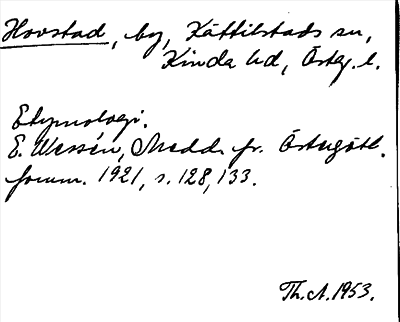 Hovstad, by, Kättilstads sn,
Kinda hd, Östg. l.
Etymologi.
E. Wessén, Medd. fr. Östergötl.
fornm. 1921, s. 128, 133.
Th. A. 1953.